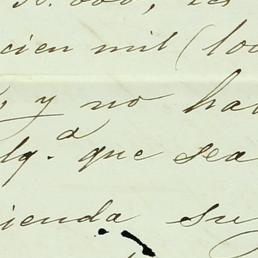 cien mil (100
y no ha
lq.ª que sea
ienda su